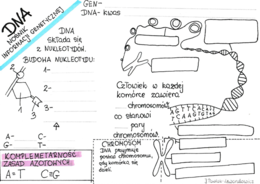 DNA
NOŚNIK
INFORMACJI GENETYCZNEJ
GEN-
DNA- kwas
DNA
SKŁADA SIĘ
Z NUKLEOTYDÓW.
BUDOWA NUKLEOTYDU:
1-
2-
3-
1
2
3
A-
C-
G-
T-
KOMPLEMETARNOŚĆ
ZASAD AZOTOWYCH
A=T C≡G
Człowiek w każdej
komórce zawiera
chromosomów
co stanowi
pary
chromosomów.
CHROMOSOM
DNA przyjmuje
postać chromosomu,
gdy komórka się
dzieli.